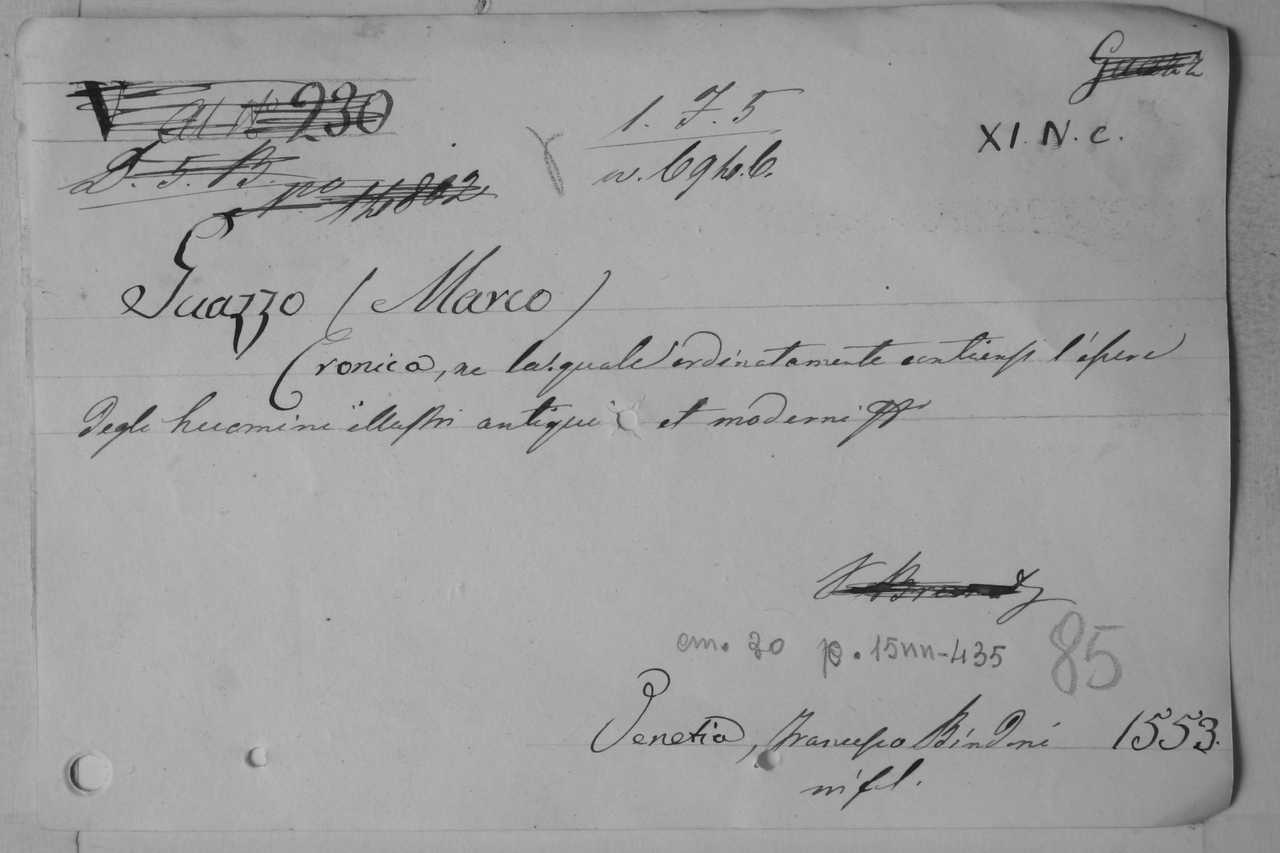 V 230
1. F. 5
XI. N. c.
D. 5. B.
no 14802
Guazzo (Marco)
Cronica, ne la quale ordinatamente contiensi l'opere
degli huomini illustri antiqui et moderni
cm. 30 p. 15nn-435 85
Venetia, Francesco Bindoni 1553.
in fol.